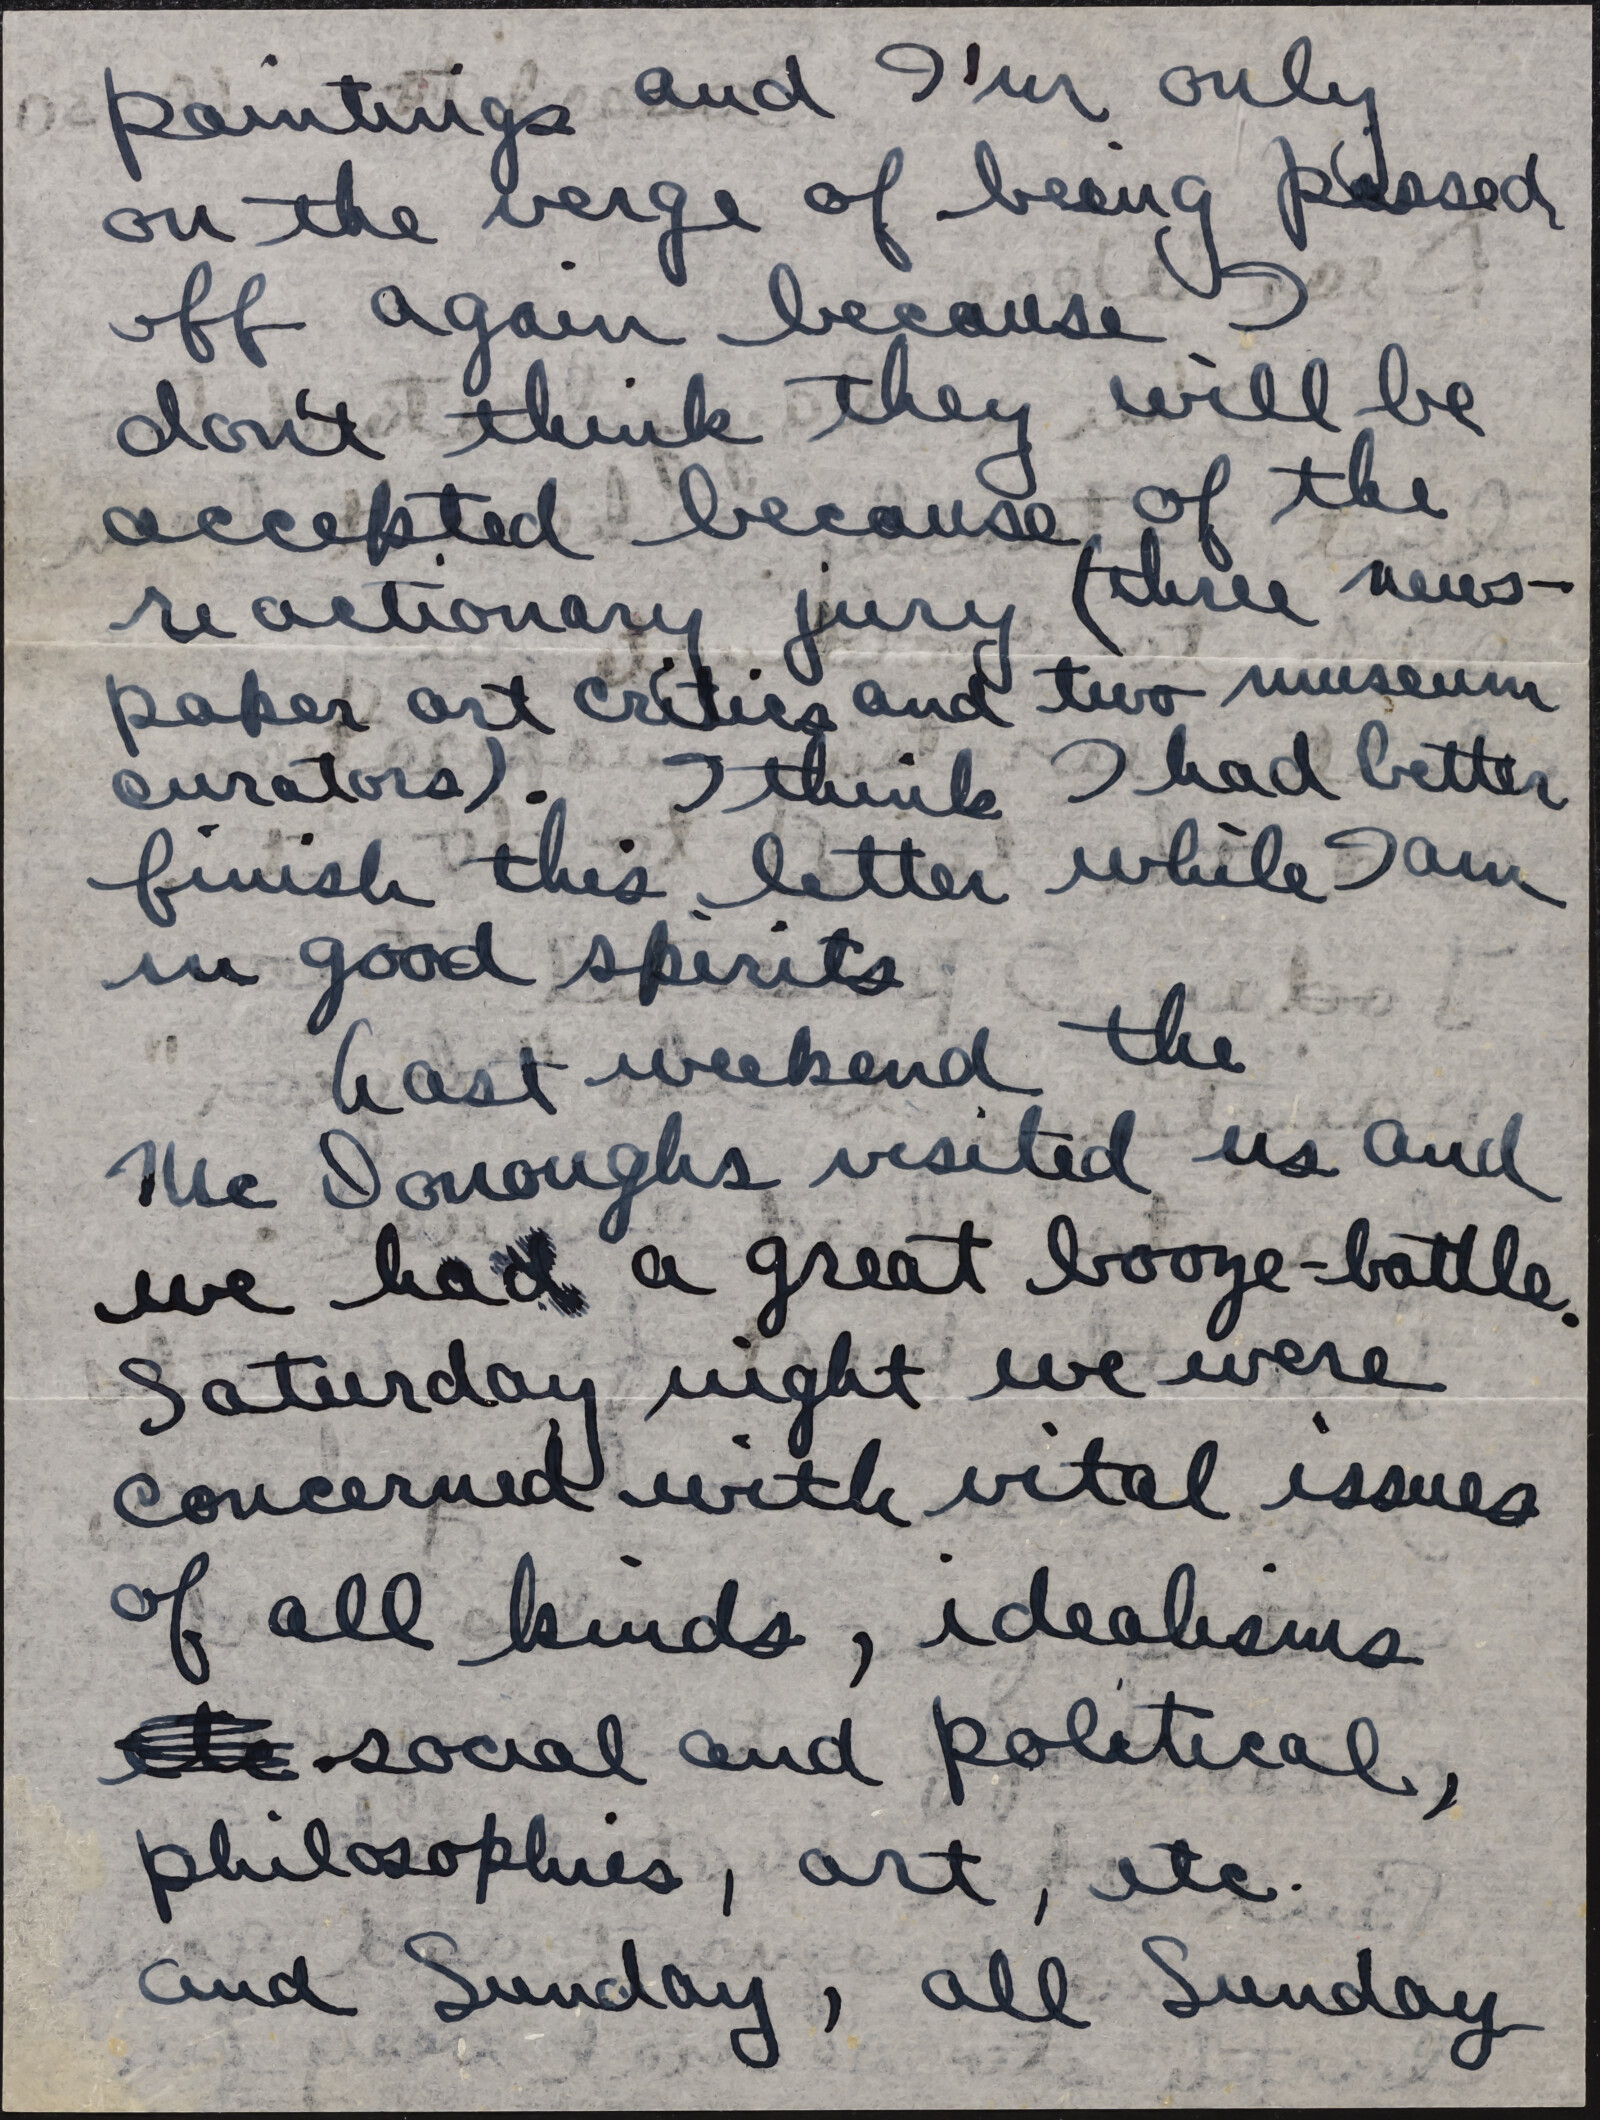 paintings and I'm only
on the verge of being pissed
off again because I
don't think they will be
accepted because of the
reactionary jury (three news-
paper art critics and two museum
curators). I think I had better
finish this letter while I am
in good spirits
Last weekend the
McDonoughs visited us and
we had a great booze-battle.
Saturday night we were
concerned with vital issues
of all kinds, idealisms
etc social and political,
philosophies, art, etc.
and Sunday, all Sunday